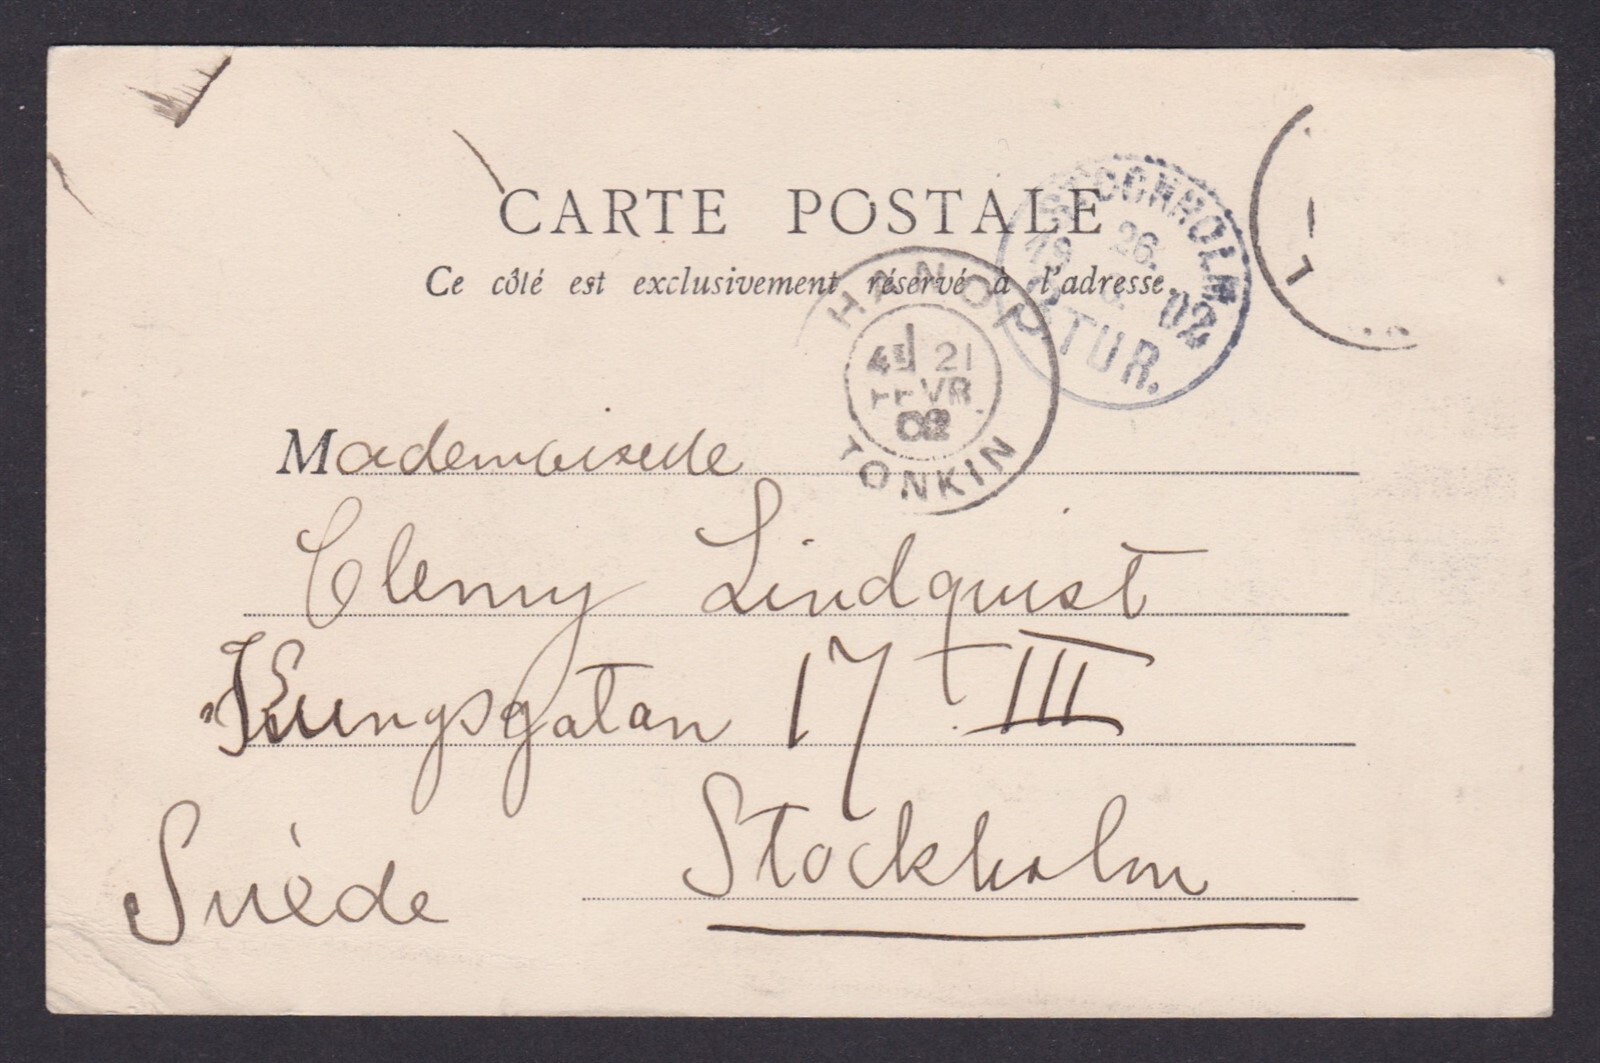 CARTE POSTALE
Ce côté est exclusivement réservé à l'adresse.
STOCKHOLM
26.
02
TUR.
HANOI
21
FEVR
02
TONKIN
Mademoiselle
Clenny Lindquist
Kungsgatan 17 III
Stockholm
Suède